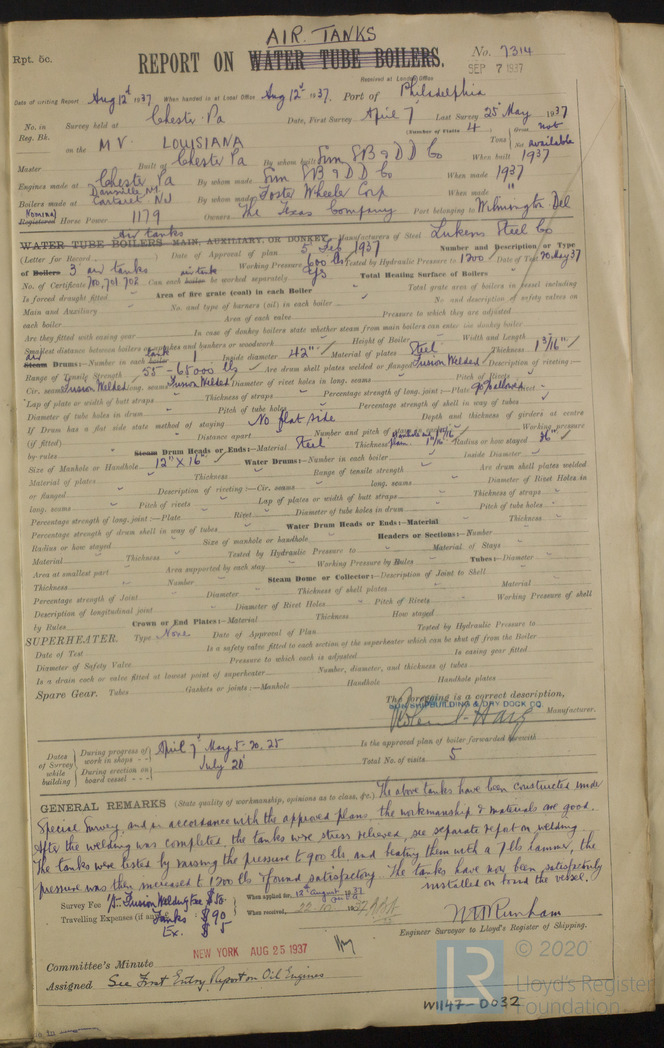 AIR TANKS
Rpt. 5c.
REPORT ON WATER TUBE BOILERS.
No. 7314
SEP 7 1937
Received at London Office
Date of writing Report Aug 12th 1937 When handed in at Local Office Aug 12th 1937. Port of Philadelphia
No. in Reg. Bk. Survey held at Chester Pa Date, First Survey April 7 Last Survey 25th May 1937
(Number of Visits 4)
on the M.V. LOUISIANA Tons Gross not Net available
Master Built at Chester Pa By whom built Sun S B & D D Co When built 1937
Engines made at Chester Pa By whom made Sun S B & D D Co When made 1937
Boilers made at Dansville NY Carteret NJ By whom made Foster Wheeler Corp When made "
Nominal Registered Horse Power 1179 Owners The Texas Company Port belonging to Wilmington Del
Air tanks
WATER TUBE BOILERS MAIN, AUXILIARY, OR DONKEY. Manufacturers of Steel Lukens Steel Co
(Letter for Record) Date of Approval of plan 5 Feb 1937 Number and Description or Type
of Boilers 3 air tanks Working Pressure 600 lbs Tested by Hydraulic Pressure to 1200 Date of Test 20 May 37
No. of Certificate 700, 701, 702 Can each air tank boiler be worked separately yes Total Heating Surface of Boilers
Is forced draught fitted Area of fire grate (coal) in each Boiler Total grate area of boilers in vessel including
Main and Auxiliary No. and type of burners (oil) in each boiler No. and description of safety valves on
each boiler Area of each valve Pressure to which they are adjusted
Are they fitted with easing gear In case of donkey boilers state whether steam from main boilers can enter the donkey boiler
Smallest distance between boilers or uptakes and bunkers or woodwork Height of Boiler Width and Length
Air Steam Drums:—Number in each tank boiler 1 Inside diameter 42" Material of plates Steel Thickness 1 3/16"
Range of Tensile Strength 55 - 65000 lbs Are drum shell plates welded or flanged Fusion Welded Description of riveting:—
Cir. seams Fusion Welded long. seams Fusion Welded Diameter of rivet holes in long. seams Pitch of Rivets
Lap of plate or width of butt straps Thickness of straps Percentage strength of long. joint:—Plate 90% allowed Rivet
Diameter of tube holes in drum Pitch of tube holes Percentage strength of shell in way of tubes
If Drum has a flat side state method of staying No flat side Depth and thickness of girders at centre
(if fitted) Distance apart Number and pitch of stays Working pressure
by rules Steam Drum Heads or Ends:—Material Steel Thickness Radius or how stayed 36"
Size of Manhole or Handhole 12" X 16" Water Drums:—Number in each boiler Inside Diameter
Material of plates Thickness Range of tensile strength Are drum shell plates welded
or flanged Description of riveting:—Cir. seams long. seams Diameter of Rivet Holes in
long. seams Pitch of rivets Lap of plates or width of butt straps Thickness of straps
Percentage strength of long. joint:—Plate Rivet Diameter of tube holes in drum Pitch of tube holes
Percentage strength of drum shell in way of tubes Water Drum Heads or Ends:—Material Thickness
Radius or how stayed Size of manhole or handhole Headers or Sections:—Number
Material Thickness Tested by Hydraulic Pressure to Material of Stays
Area at smallest part Area supported by each stay Working Pressure by Rules Tubes:—Diameter
Thickness Number Steam Dome or Collector:—Description of Joint to Shell
Percentage strength of Joint Diameter Thickness of shell plates Material
Description of longitudinal joint Diameter of Rivet Holes Pitch of Rivets Working Pressure of shell
by Rules Crown or End Plates:—Material Thickness How stayed
SUPERHEATER. Type None Date of Approval of Plan Tested by Hydraulic Pressure to
Date of Test Is a safety valve fitted to each section of the superheater which can be shut off from the Boiler
Diameter of Safety Valve Pressure to which each is adjusted Is easing gear fitted
Is a drain cock or valve fitted at lowest point of superheater Number, diameter, and thickness of tubes
Spare Gear. Tubes Gaskets or joints:—Manhole Handhole Handhole plates
The foregoing is a correct description,
SUN SHIPBUILDING & DRY DOCK CO.
Manufacturer.
Dates of Survey while building During progress of work in shops April 7 May 5. 20. 25 Is the approved plan of boiler forwarded herewith
During erection on board vessel July 20 Total No. of visits 5
GENERAL REMARKS (State quality of workmanship, opinions as to class, &c.) The above tanks have been constructed under
Special Survey, and in accordance with the approved plans, the workmanship & materials are good.
After the welding was completed the tanks were stress relieved, see separate report on welding
The tanks were tested by raising the pressure to 900 lbs and beating them with a 7 lb hammer, the
pressure was then increased to 1200 lbs & found satisfactory. The tanks have now been satisfactorily
installed on board the vessel.
Survey Fee Fusion Welding Fee $50 When applied for, 12th August 1937
Travelling Expenses (if any) Tanks $90 When received, 22-10 1937
Ex. $5
Engineer Surveyor to Lloyd's Register of Shipping.
NEW YORK AUG 25 1937
Committee's Minute
Assigned See First Entry Report on Oil Engines
© 2020
LR
Lloyd's Register
Foundation
W1147-0032